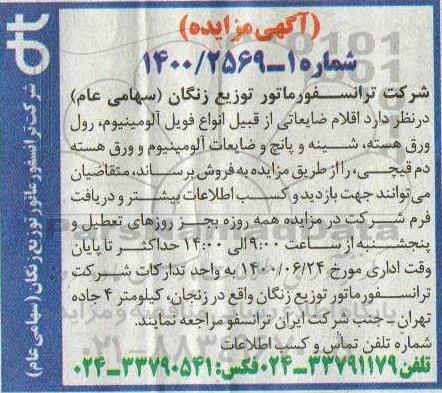 (آگهی مزایده)
شماره ۱_۱۴۰۰/۲۵۶۹
شرکت ترانسفورماتور توزیع زنگان (سهامی عام)
درنظر دارد اقلام ضایعاتی از قبیل انواع فویل آلومینیوم، رول
ورق هسته، شینه و پانچ و ضایعات آلومینیوم و ورق هسته
دم قیچی، را از طریق مزایده به فروش برساند، متقاضیان
می‌توانند جهت بازدید و کسب اطلاعات بیشتر و دریافت
فرم شرکت در مزایده همه روزه بجز روزهای تعطیل و
پنجشنبه از ساعت ۹:۰۰ الی ۱۴:۰۰ حداکثر تا پایان
وقت اداری مورخ ۱۴۰۰/۰۶/۲۴ به واحد تدارکات شرکت
ترانسفورماتور توزیع زنگان واقع در زنجان، کیلومتر ۴ جاده
تهران _ جنب شرکت ایران ترانسفو مراجعه نمایند.
شماره تلفن تماس و کسب اطلاعات
تلفن ۳۳۷۹۱۱۷۹_۰۲۴ فکس: ۳۳۷۹۰۵۴۱_۰۲۴
شرکت ترانسفورماتور توزیع زنگان (سهامی عام)